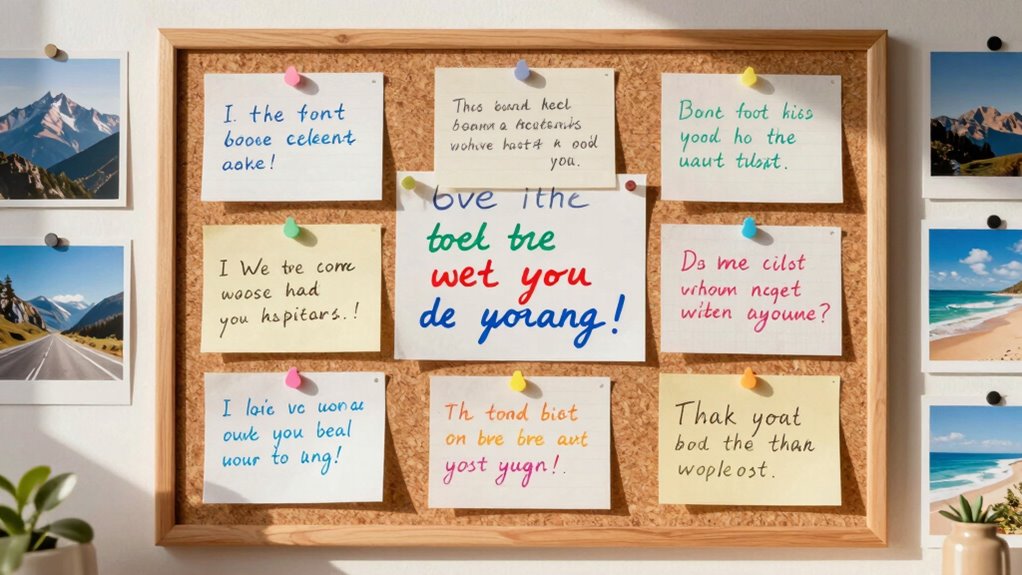 I. the font
boose celeent
aoke!
This board heel
boama a
wohive hast a ood
you.
Bont foot kiss
yood ho the
uaut tilst.
bve ithe
toel tre
wet you
de yorang!
I We tre come
woose had
you hspitars.!
Ds me cilst
vrhom nceget
witen ayoume?
I loie vc
ouve you beal
uour to ung!
Th tond bist
on bre bre aut
yost yugn!.
Thak yoat
bod the than
wopleost.